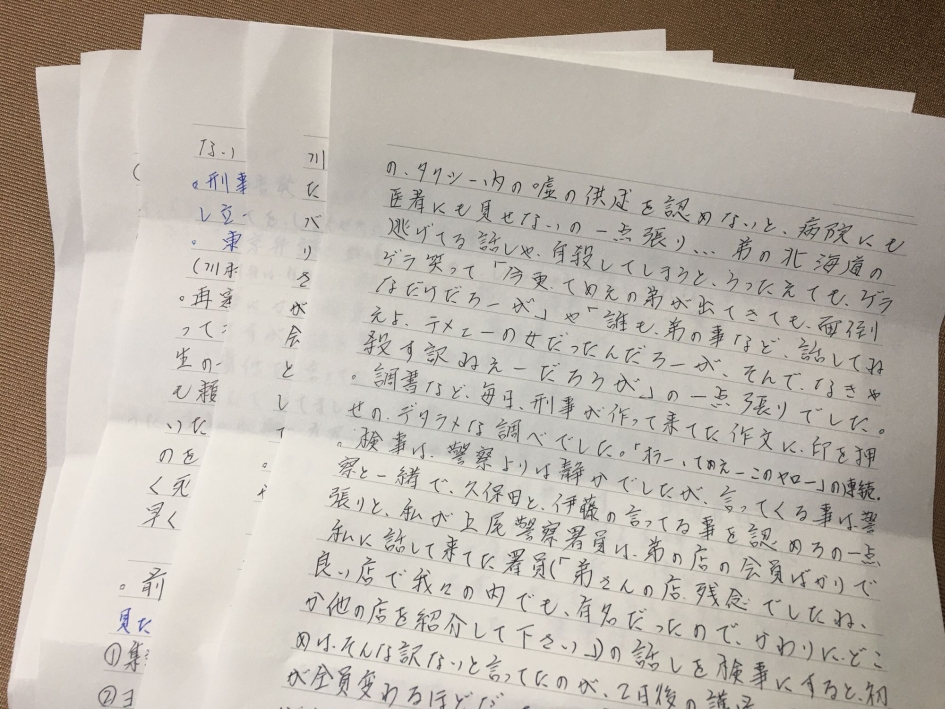 の、タクシー内の嘘の供述を認めないと、病院にも
医者にも見せないの一点張り… 弟の北海道の
逃げてる話しや、自殺してしまうと、うったえても、ゲラ
ゲラ笑って「今更、てめえの弟が出てきても、面倒
なだけだろーが」や「誰も、弟の事など、話してね
えよ、テメェーの女だったんだろーが、そんで、なきゃ
殺す訳ねぇーだろうが」の一点張りでした。
。調書など、毎日、刑事が作って来てた作文に、印を押
せの、デタラメな調べでした。「オラー、てめえーこのヤロー」の連続。
。検事は、警察よりは静かでしたが、言ってくる事は、警
察と一緒で、久保田と、伊藤の言ってる事を認めろの一点
張りと、私が上尾警察署員は、弟の店の会員ばかりで
私に話して来てた署員(「弟さんの店、残念でしたね、
良い店で我々の内でも、有名だったので、かわりに、どこ
か他の店を紹介して下さい」)の話しを検事にすると、初
めは、そんな訳ないと言ってたのが、2日後の
が全員変わるほどだ
ない
。刑事
し立
。東
。再
って
生の
も頼
いた
のを
く死
早く
。前
見た
①集
②ヨ
川
た
バ
り
さ
が
会
と
し